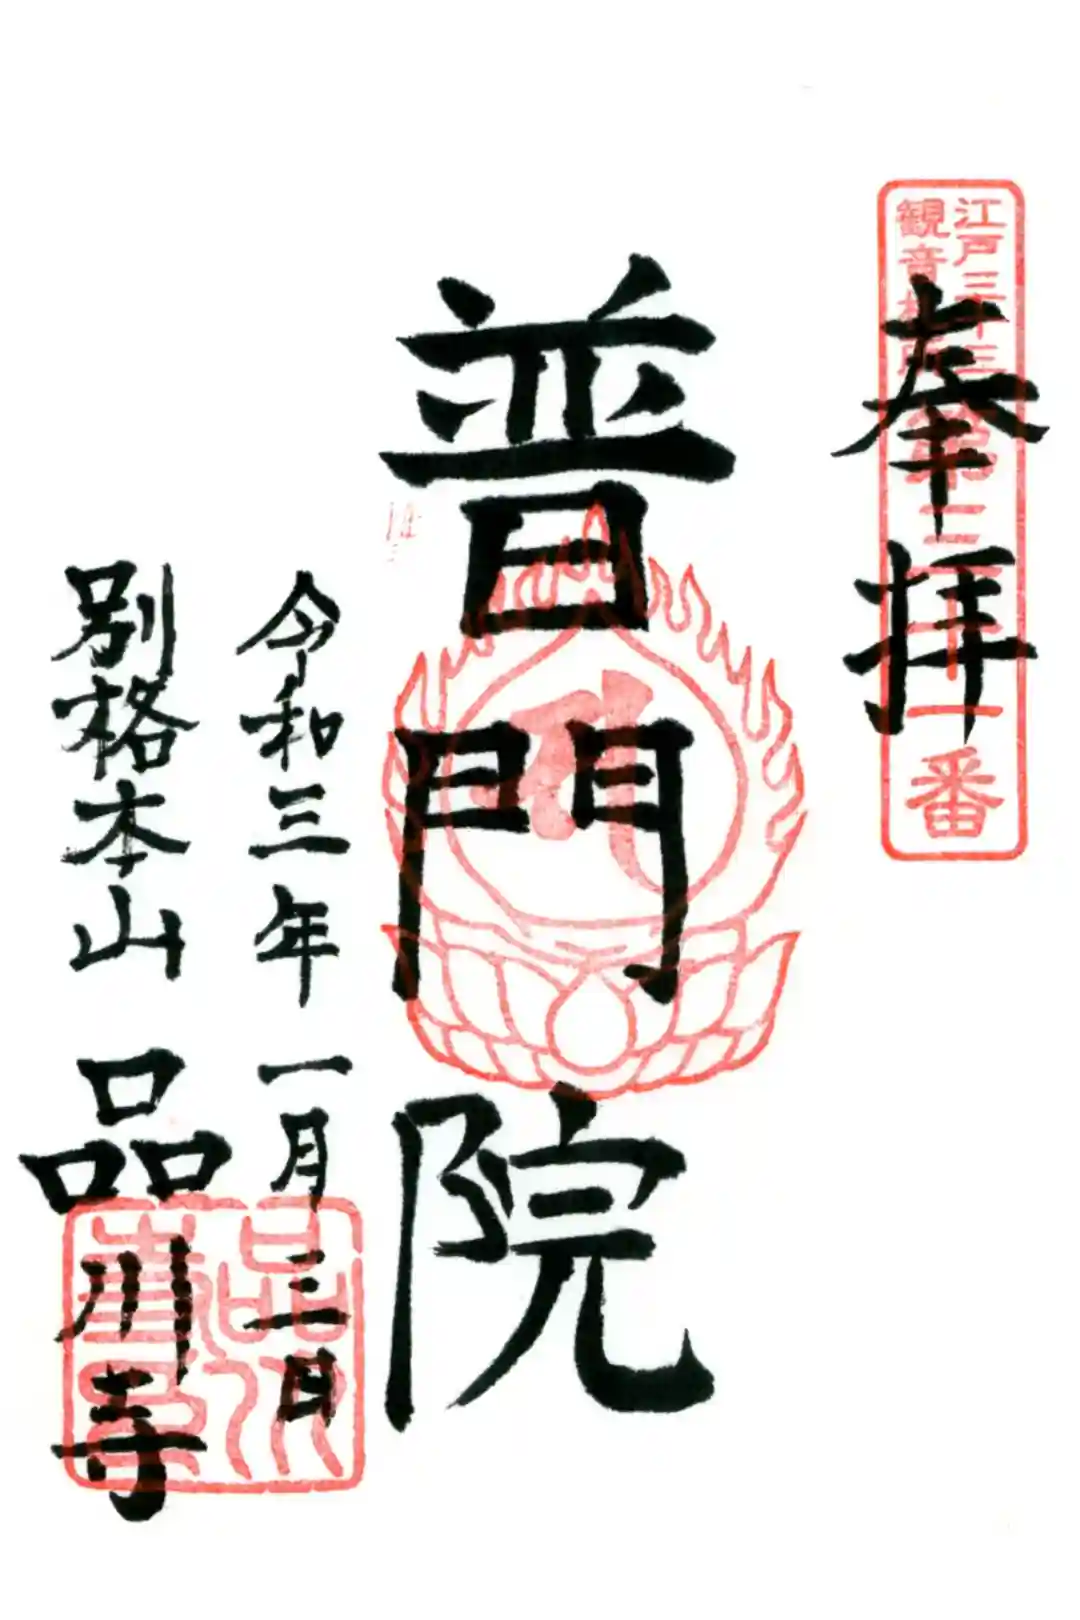 江戸三十三
観音札所
第三十一番
奉拝
普門院
令和三年一月三日
別格本山 品川寺